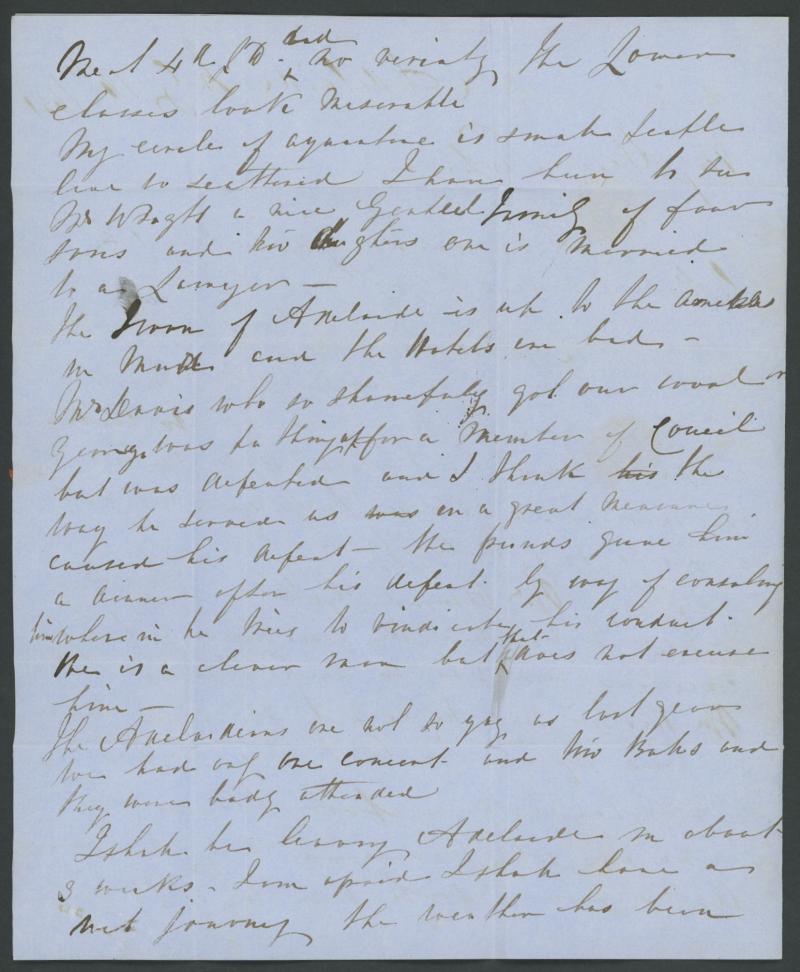 Meat 4d lb. bad no veriaty the Lower
classes look Meserable
My circle of aquantune is small peaple
live so scattered I have been to see
Mr Wright a nice Genteel Family of four
sons and two daughters one is Married
to a Lawyer —
The Town of Adelaide is up to the
in Mud and the Hotels are bad —
Mr Davis who so shamefuly got our wool
was for a Member of Council
but was defeated and I think his the
way he served us was in a great Measure
caused his defeat — the freinds gave him
a dinner after his defeat by way of consoling
him where in he tries to vindicate his conduct.
He is a clever man but that does not excuse
him —
The Adelaidians are not so gay as last year
We had only one concert and two Balls and
they were badly attended
I shall be leaving Adelaide in about
3 weeks. I am afraid I shall have a
wet journey the weather has been